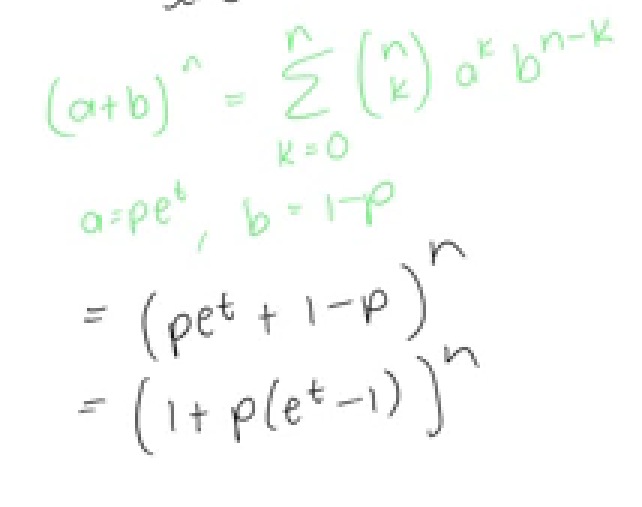 (a+b)^n = \sum_{k=0}^{n} \binom{n}{k} a^k b^{n-k}
a=pe^t, b=1-p
= (pe^t + 1-p)^n
= (1+p(e^t-1))^n